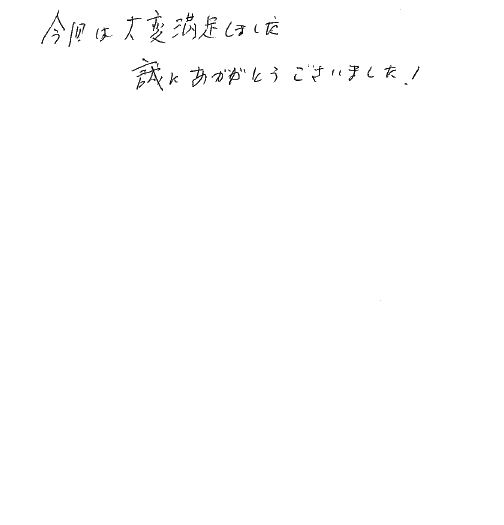 今回は大変満足しました
誠にありがとうございました!